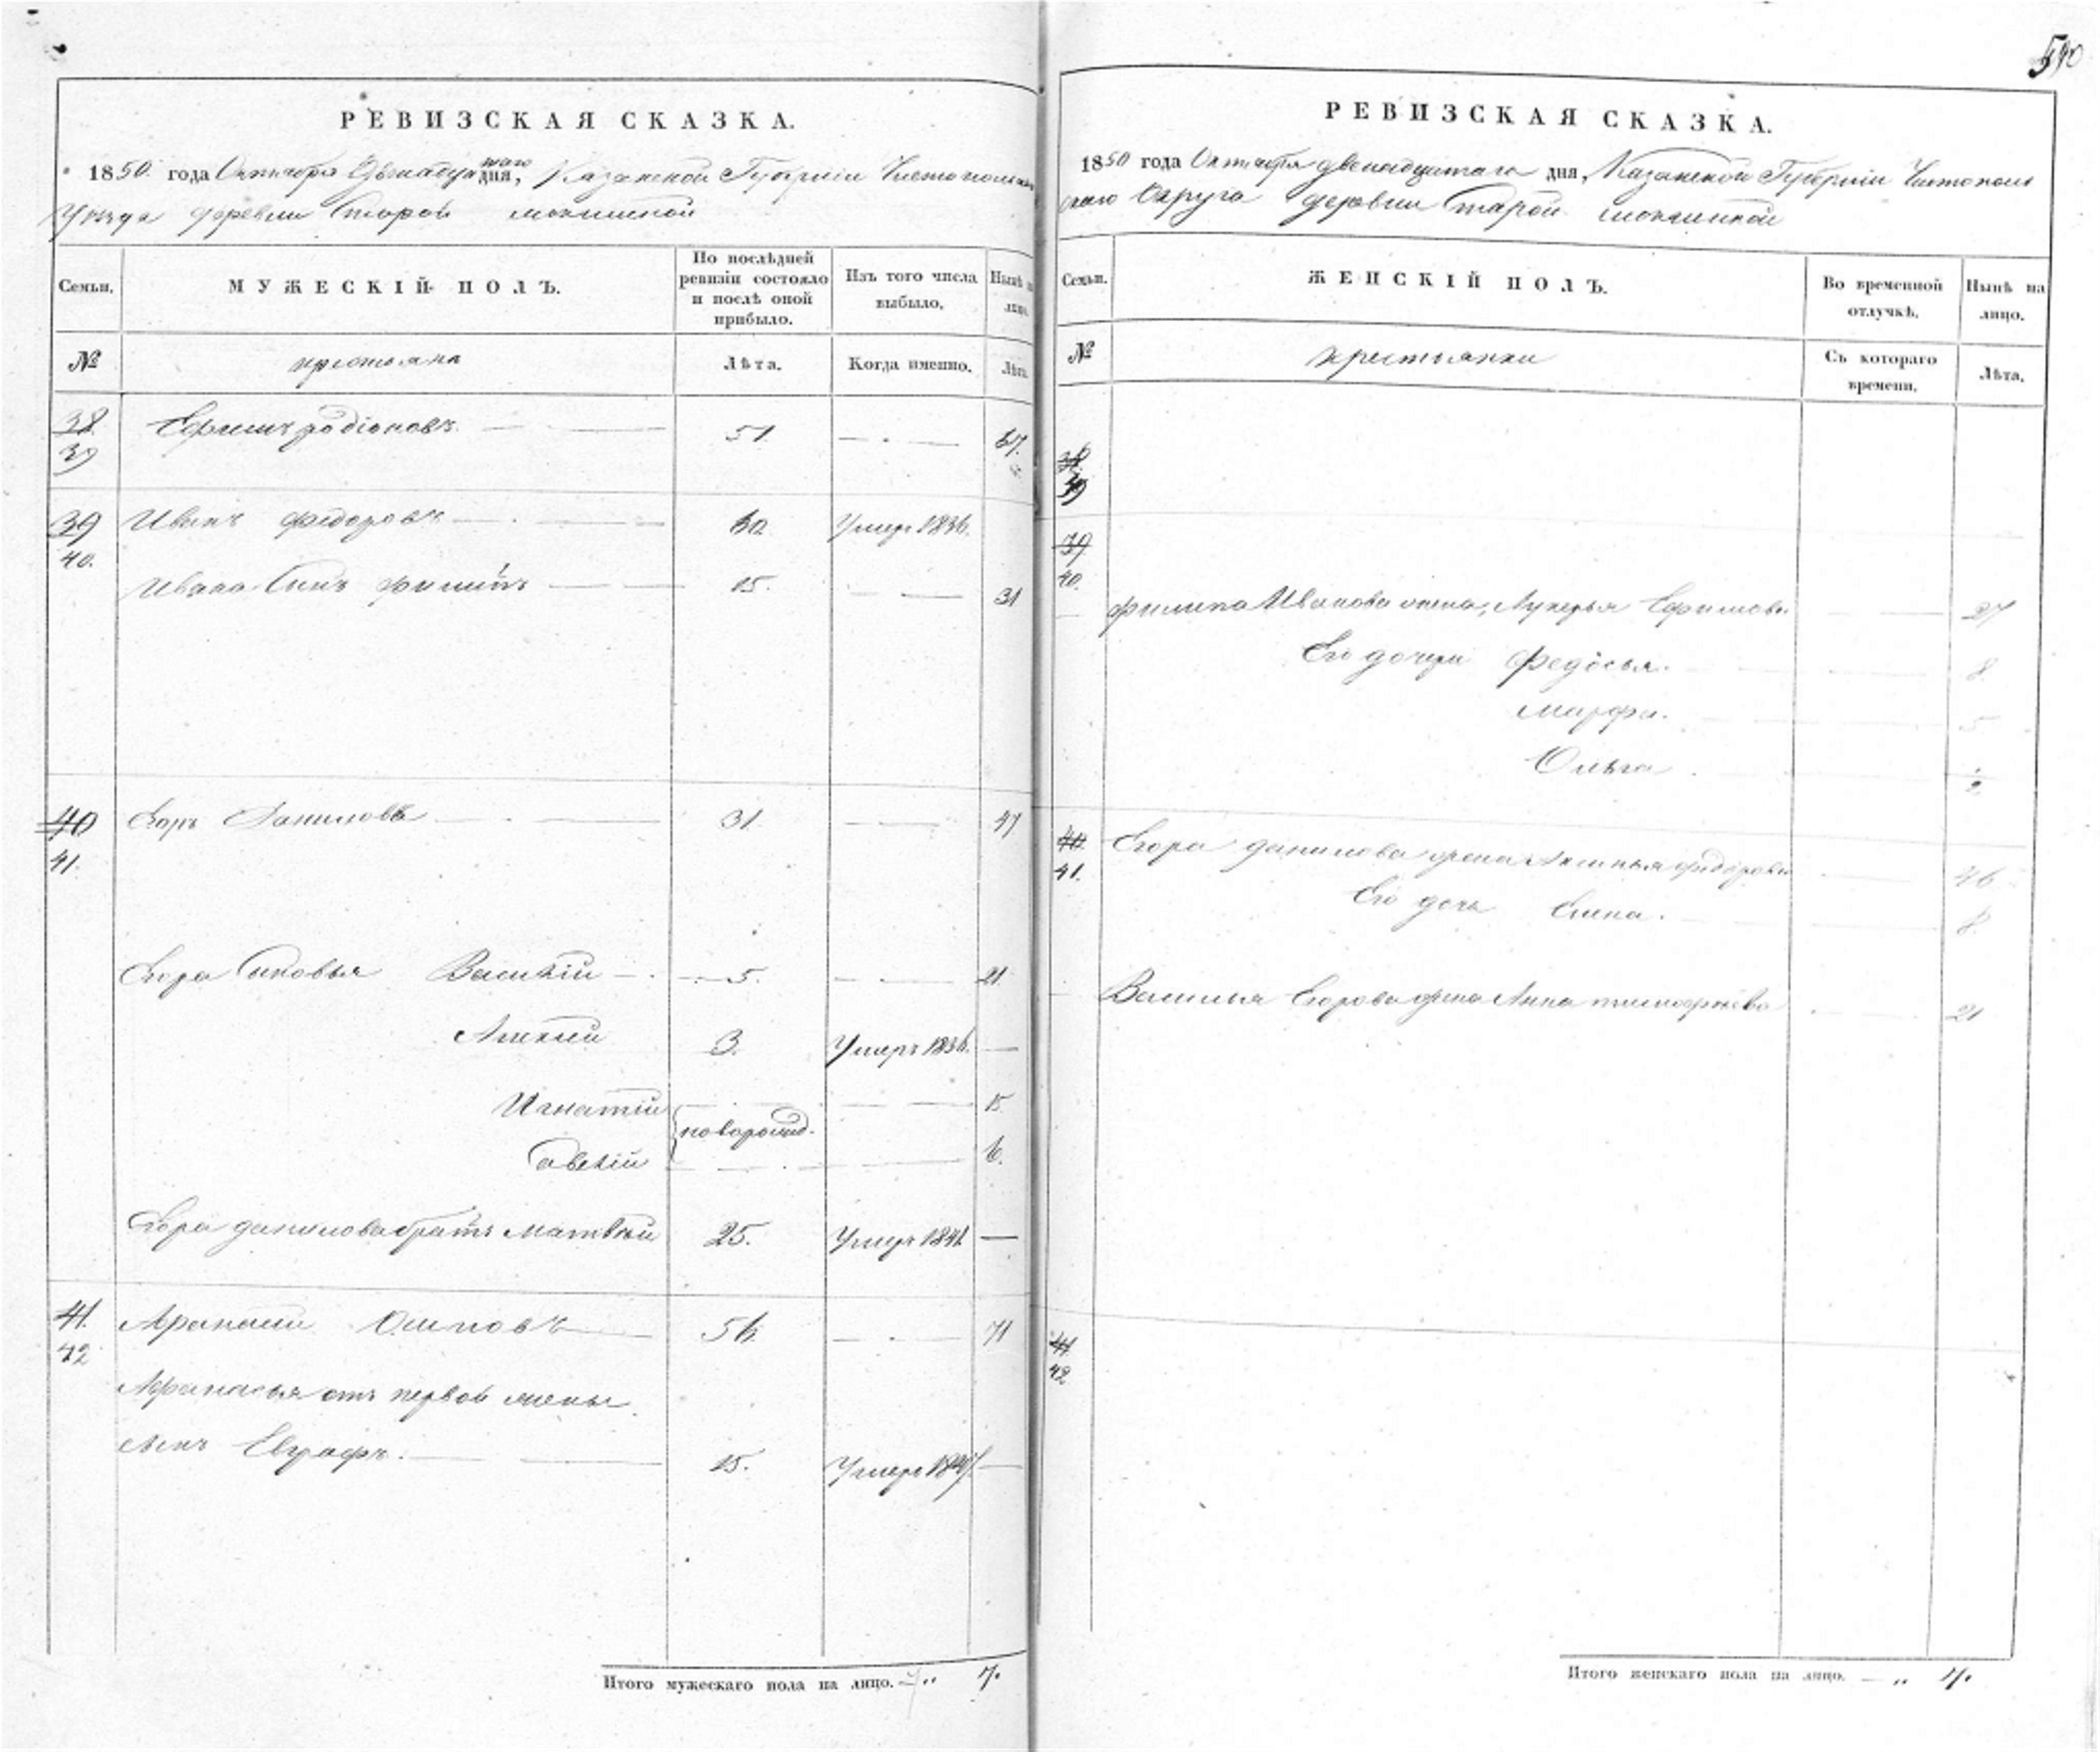 590
РЕВИЗСКАЯ СКАЗКА.
1850 года Октября Двенадцатаго дня, Казанской Губернии Чистопольскаго
Уезда деревни Старой
Семьи. МУЖЕСКІЙ ПОЛЪ. По послѣдней ревизіи состояло и послѣ оной прибыло. Изъ того числа выбыло. Нынѣ на лицо.
№ крестьяне Лѣта. Когда именно. Лѣта.
38 39 Ефимъ Родіоновъ 51. 67.
39 40. Иванъ Федоровъ 50 Умеръ 1836.
Ивана Сынъ Филипъ 15. 31
40 41. Егоръ Даниловъ 31. 47
Егора Сыновья Василій 5. 21
Алексей 3. Умеръ 1836. —
Игнатій новорожд. 15
Савелій 6.
Егора данилова братъ Матвей 25. Умеръ 1841 —
41. 42 Афанасий Осиповъ 56. 71
Афанасья отъ первой жены
сынъ Евграфъ. 15. Умеръ 1847. —
Итого мужескаго пола на лицо. 7.
РЕВИЗСКАЯ СКАЗКА.
1850 года Октября двенадцатаго дня, Казанской Губерніи Чистополь
скаго Округа деревни Старой
Семьи. ЖЕНСКІЙ ПОЛЪ. Во временной отлучкѣ. Нынѣ на лицо.
№ крестьянки Съ котораго времени. Лѣта.
38 39
39 40.
Филипа Иванова жена, Лукерья Ефимова 27
Его дочери Федосья. 8
Марфа. 5
Ольга ½
40. 41. Егора данилова жена Аксинья федорова 46
Его дочь Елена. 8
Василья Егорова жена Анна тимофеева 21
41 42
Итого женскаго пола на лицо. — „ 7.